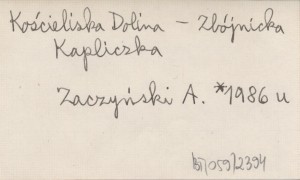 Kościeliska Dolina - Zbójnicka
Kapliczka
Zaczyński A. *1986 u
BT/059/2394